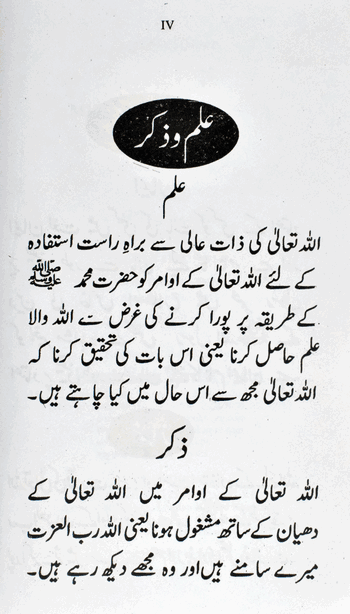 IV
علم و ذکر
علم
اللہ تعالیٰ کی ذات عالی سے براہِ راست استفادہ
کے لئے اللہ تعالیٰ کے اوامر کو حضرت محمد ﷺ
کے طریقہ پر پورا کرنے کی غرض سے اللہ والا
علم حاصل کرنا یعنی اس بات کی تحقیق کرنا کہ
اللہ تعالیٰ مجھ سے اس حال میں کیا چاہتے ہیں۔
ذکر
اللہ تعالیٰ کے اوامر میں اللہ تعالیٰ کے
دھیان کے ساتھ مشغول ہونا یعنی اللہ رب العزت
میرے سامنے ہیں اور وہ مجھے دیکھ رہے ہیں۔